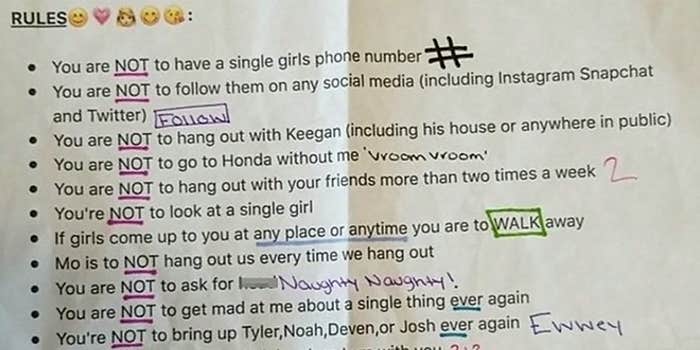 RULES😊💗👸😋😘:
• You are NOT to have a single girls phone number #
• You are NOT to follow them on any social media (including Instagram Snapchat
and Twitter) Follow
• You are NOT to hang out with Keegan (including his house or anywhere in public)
• You are NOT to go to Honda without me 'vroom vroom'
• You are NOT to hang out with your friends more than two times a week 2
• You're NOT to look at a single girl
• If girls come up to you at any place or anytime you are to WALK away
• Mo is to NOT hang out us every time we hang out
• You are NOT to ask for 'Naughty Naughty!
• You are NOT to get mad at me about a single thing ever again
• You're NOT to bring up Tyler,Noah,Deven,or Josh ever again Ewwey
with you